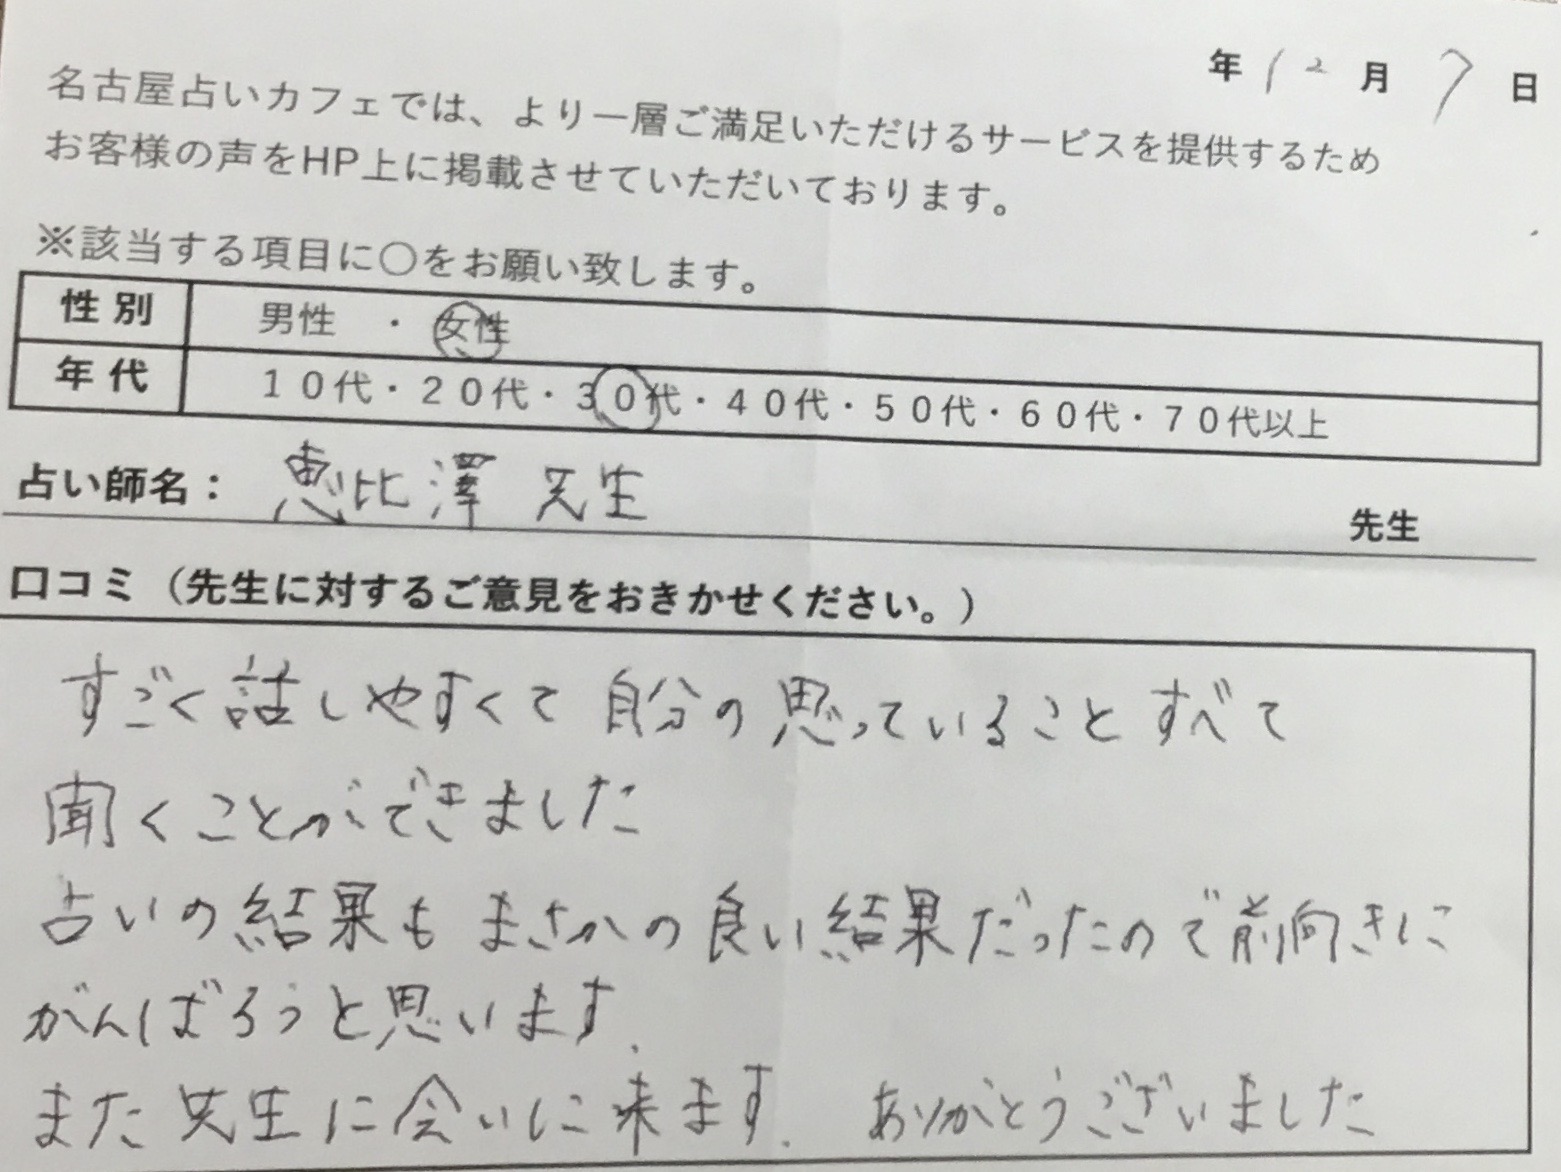 年 12 月 7 日
名古屋占いカフェでは、より一層ご満足いただけるサービスを提供するため
お客様の声をHP上に掲載させていただいております。
※該当する項目に〇をお願い致します。
性別 男性 ・ 女性
年代 10代・20代・30代・40代・50代・60代・70代以上
占い師名： 恵比澤 先生 先生
口コミ（先生に対するご意見をおきかせください。）
すごく話しやすくて 自分の思っていることすべて
聞くことができました
占いの結果も まさかの良い結果だったので前向きに
がんばろうと思います.
また先生に会いに来ます. ありがとうございました